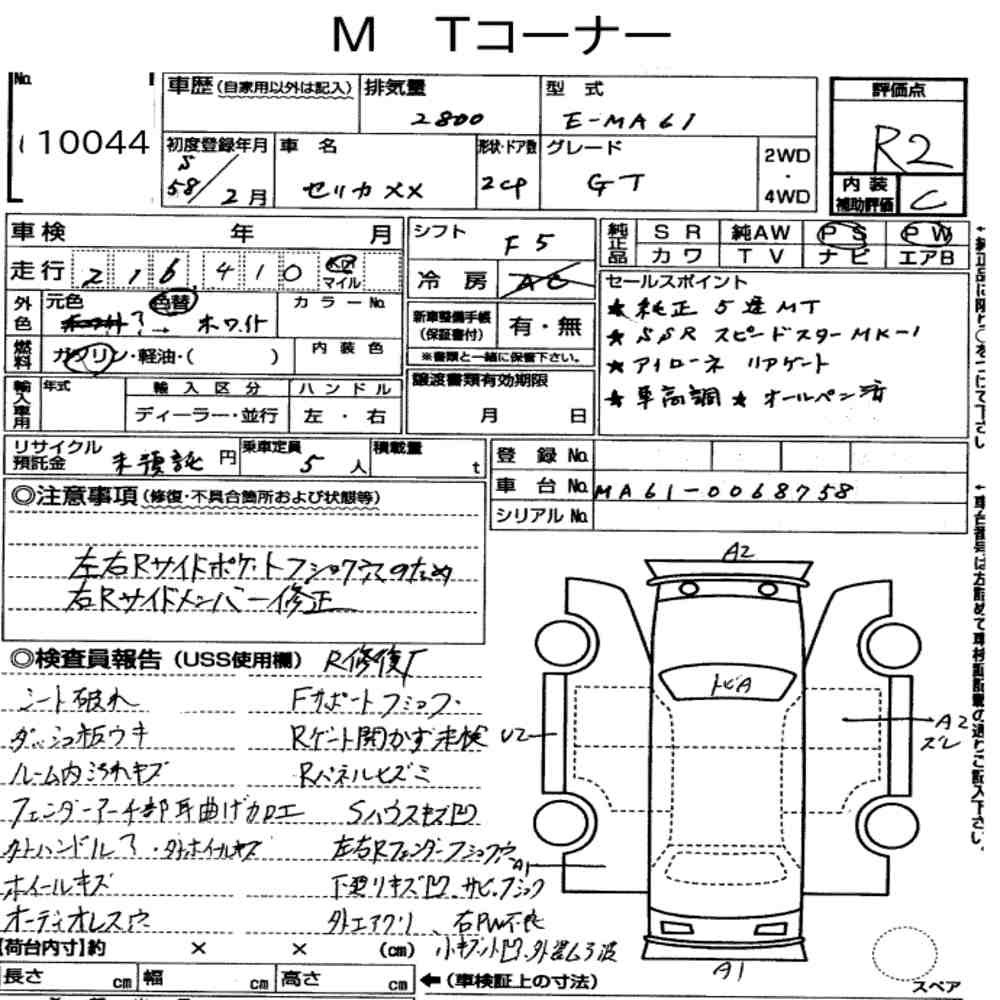 M Tコーナー
No. 10044
車歴(自家用以外は記入) 排気量 2800 型式 E-MA61
初度登録年月 S 58/2月 車名 セリカXX 形状・ドア数 2cp グレード GT 2WD・4WD
評価点 R2
内装補助評価 C
車検 年 月
走行 216,410 km マイル
外色 元色 色替 カラーNo. → ホワイト
燃料 ガソリン・軽油・( ) 内装色
輸入車用 年式 輸入区分 ハンドル
ディーラー・並行 左・右
シフト F5
冷房 AC
新車整備手帳(保証書付) 有・無
※書類と一緒に保管下さい。
譲渡書類有効期限
月 日
純正品 SR 純AW PS PW
カワ TV ナビ エアB
セールスポイント
★純正5速MT
★SSRスピードスターMK-1
★アイローネ リアゲート
★車高調 ★オールペン済
リサイクル預託金 未預託 円 乗車定員 5人 積載量 t
登録No.
車台No. MA61-0068758
シリアルNo.
◎注意事項(修復・不具合箇所および状態等)
左右Rサイドポケットフショクウスのため
右Rサイドメンバー修正
◎検査員報告(USS使用欄) R修復了
シート破れ Fサポートフショク・
ダッシュ板ウキ Rゲート開かず未検
ルーム内汚れキズ Rパネルヒズミ
フェンダーアーチ部耳曲げ加工 Sハウスキズ凹
外ハンドル ・外ホイールキズ 左右Rフェンダーフショク穴
ホイールキズ 下廻りキズ凹、サビ、フショク
オーディオレス穴 外エアクリ、右PW不良
小キズ小凹、外装ムラ波
【荷台内寸】約 × × (cm)
長さ cm 幅 cm 高さ cm ←(車検証上の寸法)
A2
トビA
U2
A2
ズレ
A1
A1
スペア